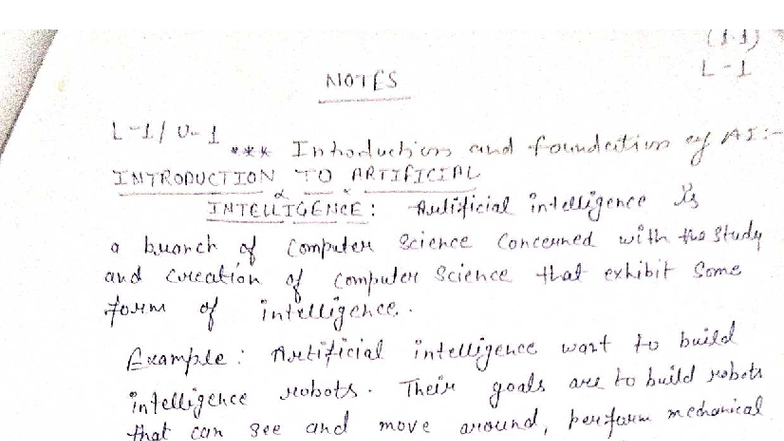 (1.1)
L-1
NOTES
L-1/U-1
*** Introduction and foundation of AI:-
INTRODUCTION TO ARTIFICIAL
INTELLIGENCE: Artificial intelligence is
a branch of computer science concerned with the study
and creation of computer science that exhibit some
form of intelligence.
Example: Artificial intelligence want to build
intelligence robots. Their goals are to build robots
that can see and move around, perform mechanical